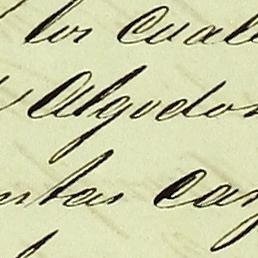 los cuale
Algodon
ntas car